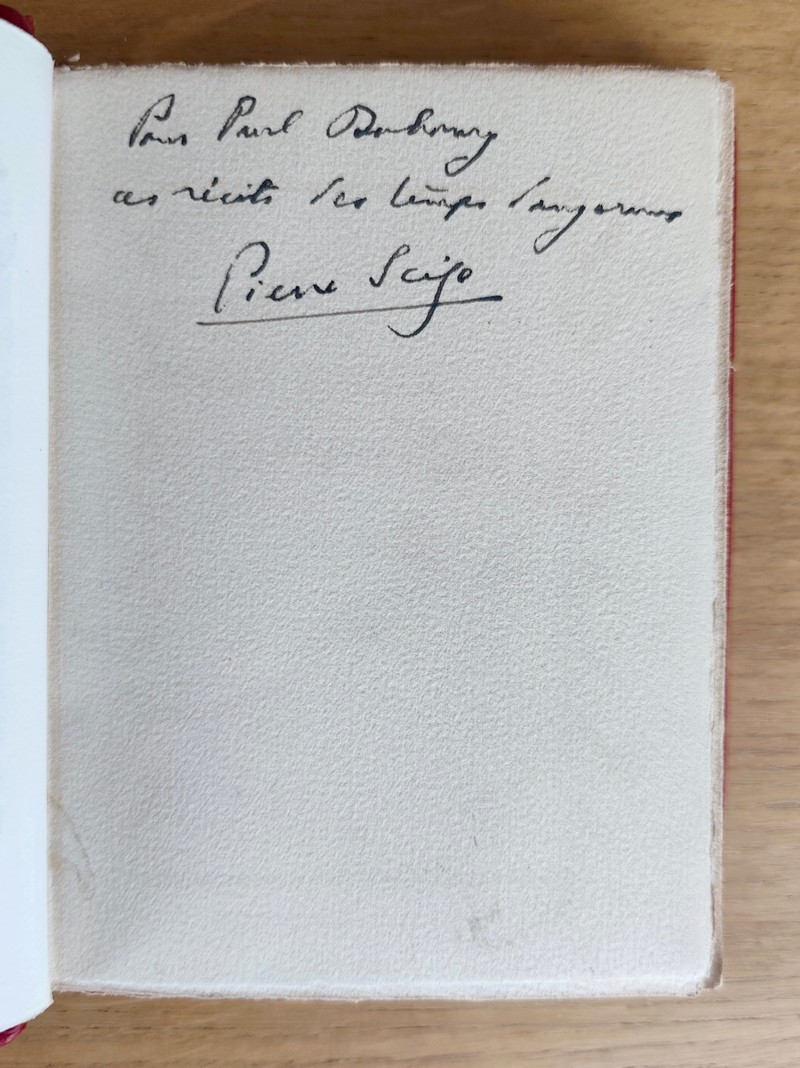 Pour Paul Dombourg
ces récits des temps dangereux
Pierre Seize